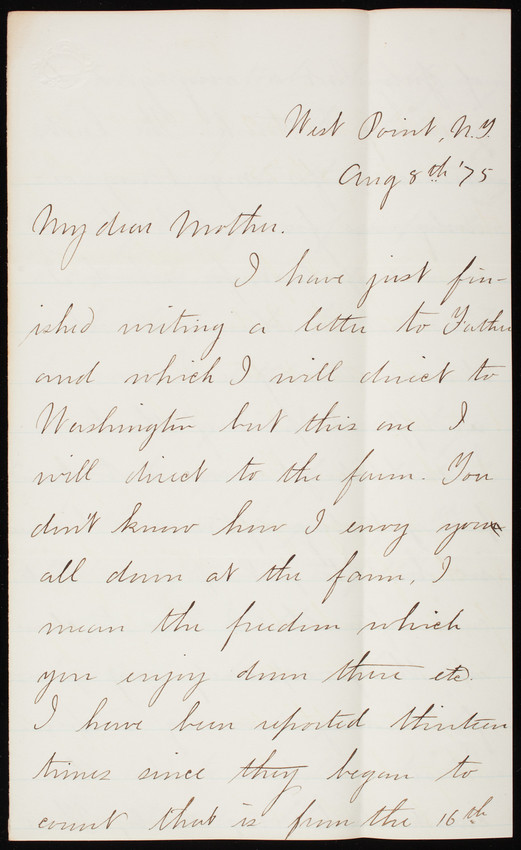 West Point, N.Y.
Aug 8th '75
My dear Mother.
I have just fin-
ished writing a letter to Father
and which I will direct to
Washington but this one I
will direct to the farm. You
don't know how I envy you
all down at the farm, I
mean the freedom which
you enjoy down there etc.
I have been reported thirteen
times since they began to
count that is from the 16th